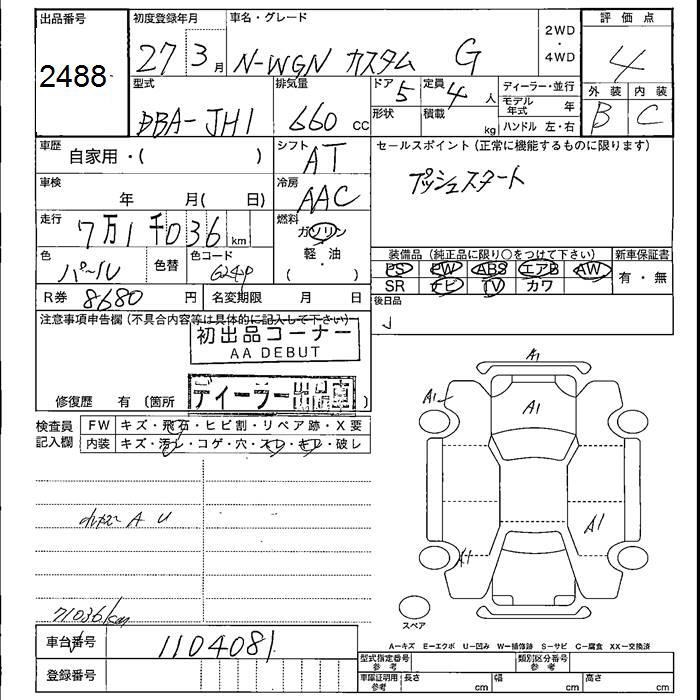 出品番号 初度登録年月 車名・グレード 2WD 評価点
2488 27 3月 N-WGN カスタム G ・ 4
4WD
型式 排気量 ドア 5 定員 4人 ディーラー・並行 外装 内装
DBA-JH1 660cc 形状 積載 kg モデル年式 年 B C
ハンドル 左・右
車歴 自家用・( ) シフト AT セールスポイント(正常に機能するものに限ります)
車検 年 月( 日) 冷房 AAC プッシュスタート
走行 7万1千036km 燃料 ガソリン
色 パール 色替 色コード 軽・油
( )
装備品(純正品に限り○をつけて下さい) 新車保証書
PS PW ABS エアB AW 有・無
SR ナビ TV カワ
R券 8680円 名変期限 月 日 後日品
注意事項申告欄(不具合内容等は具体的に記入して下さい)
初出品コーナー
AA DEBUT
ディーラー出品車
修復歴 有(箇所
検査員 FW キズ・飛石・ヒビ割・リペア跡・X要
記入欄 内装 キズ・汚レ・コゲ・穴・スレ・キレ・破レ
A1
A1 A1
A1
A1
A U
71036km
スペア
車台番号 1104081
A-キズ E-エクボ U-凹み W-補修跡 S-サビ C-腐食 XX-交換済
登録番号
型式指定番号 参考 類別区分番号 参考
車庫証明用 参考 長さ cm 幅 cm 高さ cm